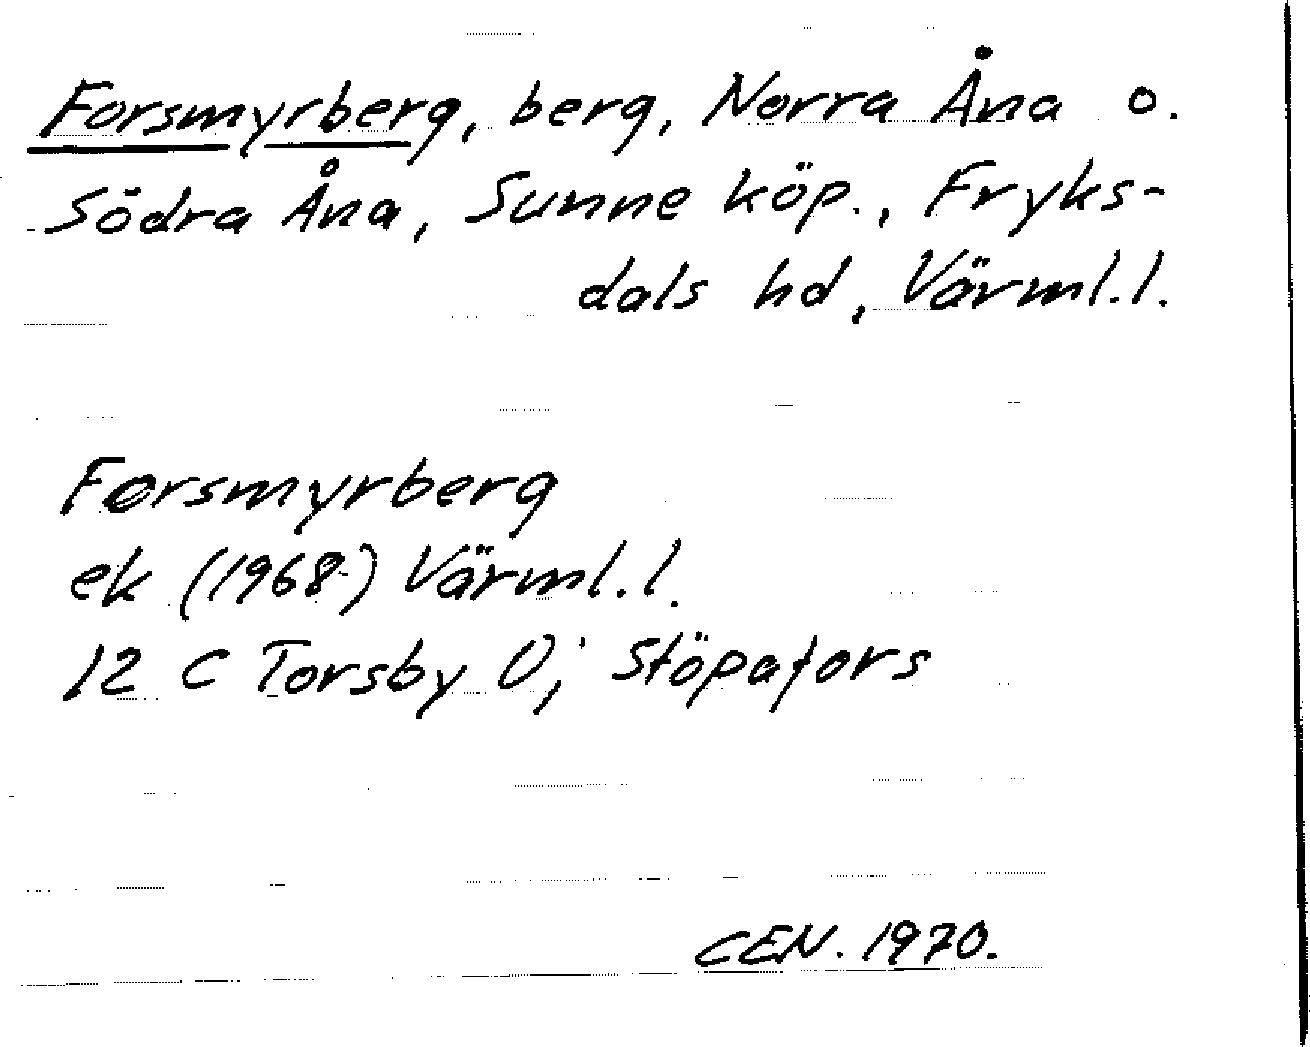 Forsmyrberg, berg, Norra Åna o.
Södra Åna, Sunne köp., Fryks-
dals hd, Värml.l.
Forsmyrberg
ek (1968) Värml.l.
12 C Torsby O; Stöpafors
CEN. 1970.